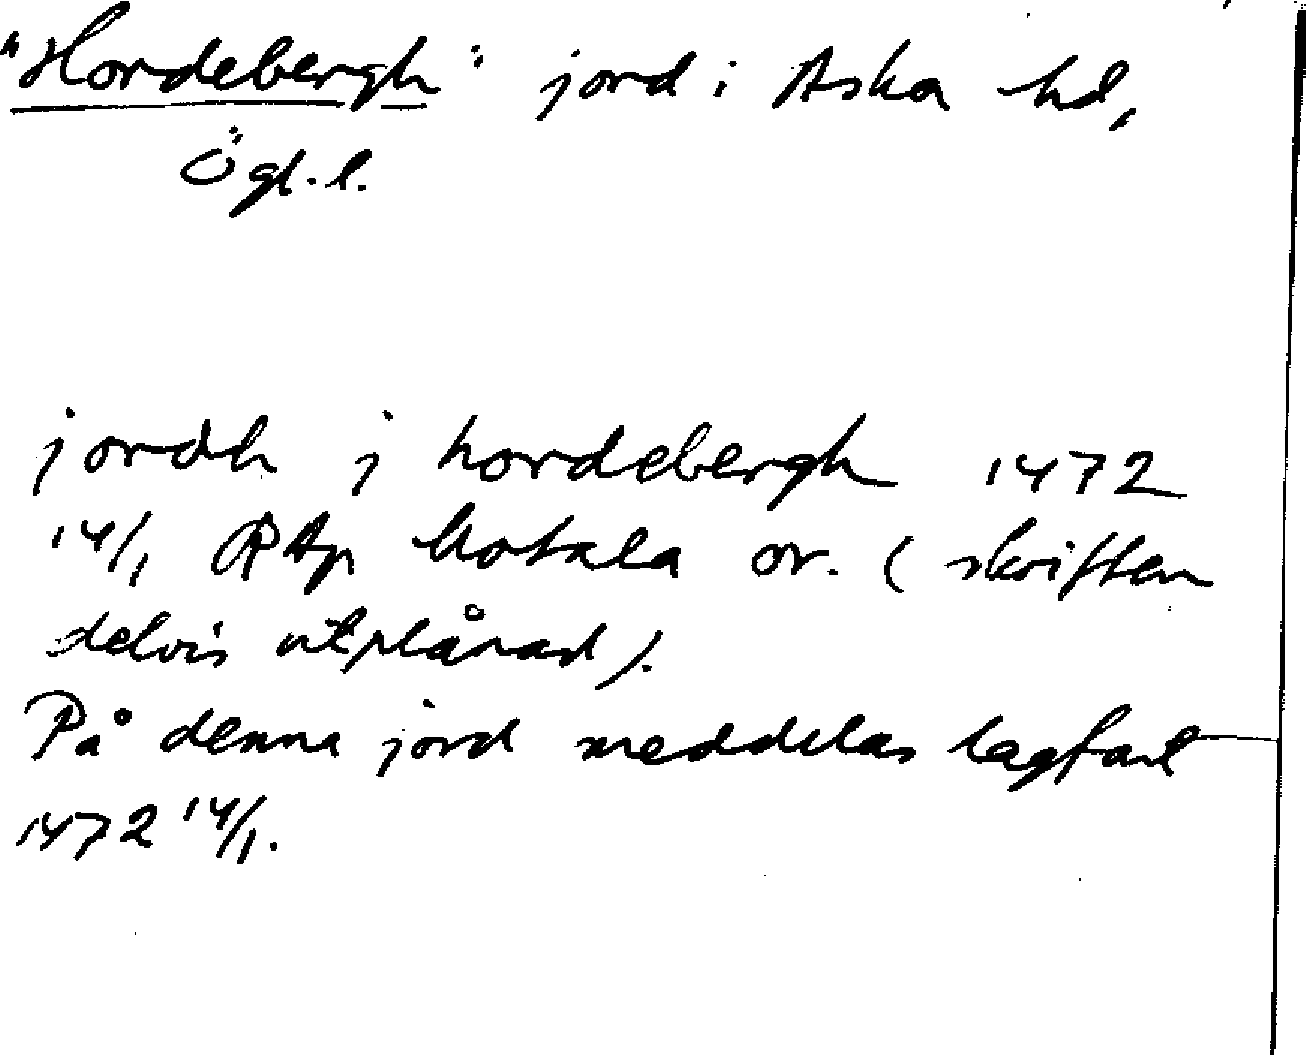 "Hordebergh" jord i Aska hd,
Ögl. l.
jordh j hordebergh 1472
14/1 RAp Motala or. (skriften
delvis utplånad).
På denna jord meddelas lagfart
1472 14/1.